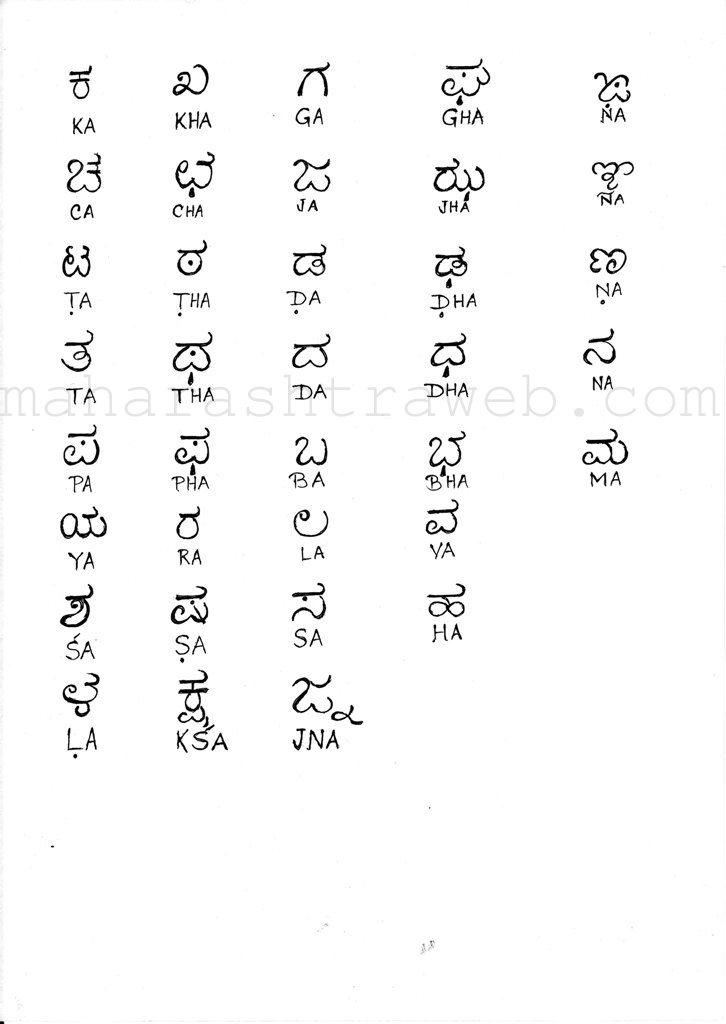 ಕ ಖ ಗ ಘ ಙ
KA KHA GA GHA ṄA
ಚ ಛ ಜ ಝ ಞ
CA CHA JA JHA ÑA
ಟ ಠ ಡ ಢ ಣ
ṬA ṬHA ḌA ḌHA ṆA
ತ ಥ ದ ಧ ನ
TA THA DA DHA NA
maharashtraweb.com
ಪ ಫ ಬ ಭ ಮ
PA PHA BA BHA MA
ಯ ರ ಲ ವ
YA RA LA VA
ಶ ಷ ಸ ಹ
ŚA ṢA SA HA
ಳ ಕ್ಷ ಜ್ನ
ḶA KŚA JNA